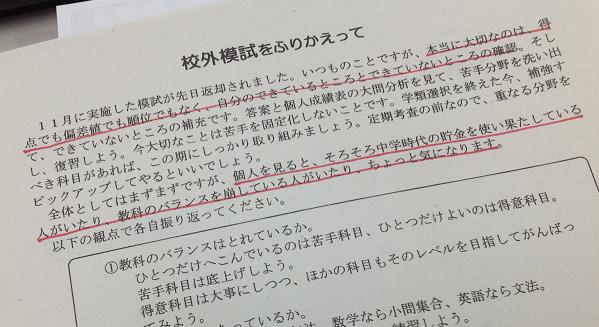 校外模試をふりかえって
11月に実施した模試が先日返却されました。いつものことですが、本当に大切なのは、得
点でも偏差値でも順位でもなく、自分のできているところとできていないところの確認。そし
て、できていないところの補充です。答案と個人成績表の大問分析を見て、苦手分野を洗い出
し、復習しよう。今大切なことは苦手を固定化しないことです。学類選択を終えた今、補強す
べき科目があれば、この期にしっかり取り組みましょう。定期考査の前なので、重なる分野を
ピックアップしてやるといいでしょう。
全体としてはまずまずですが、個人を見ると、そろそろ中学時代の貯金を使い果たしている
人がいたり、教科のバランスを崩している人がいたり、ちょっと気になります。
以下の観点で各自振り返ってください。
①教科のバランスはとれているか。
ひとつだけへこんでいるのは苦手科目、ひとつだけよいのは得意科目。
苦手科目は底上げしよう。
得意科目は大事にしつつ、ほかの科目もそのレベルを目指してがんばっ
てみよう。
っているか。
数学なら小問集合、英語なら文法。
練習しよう。